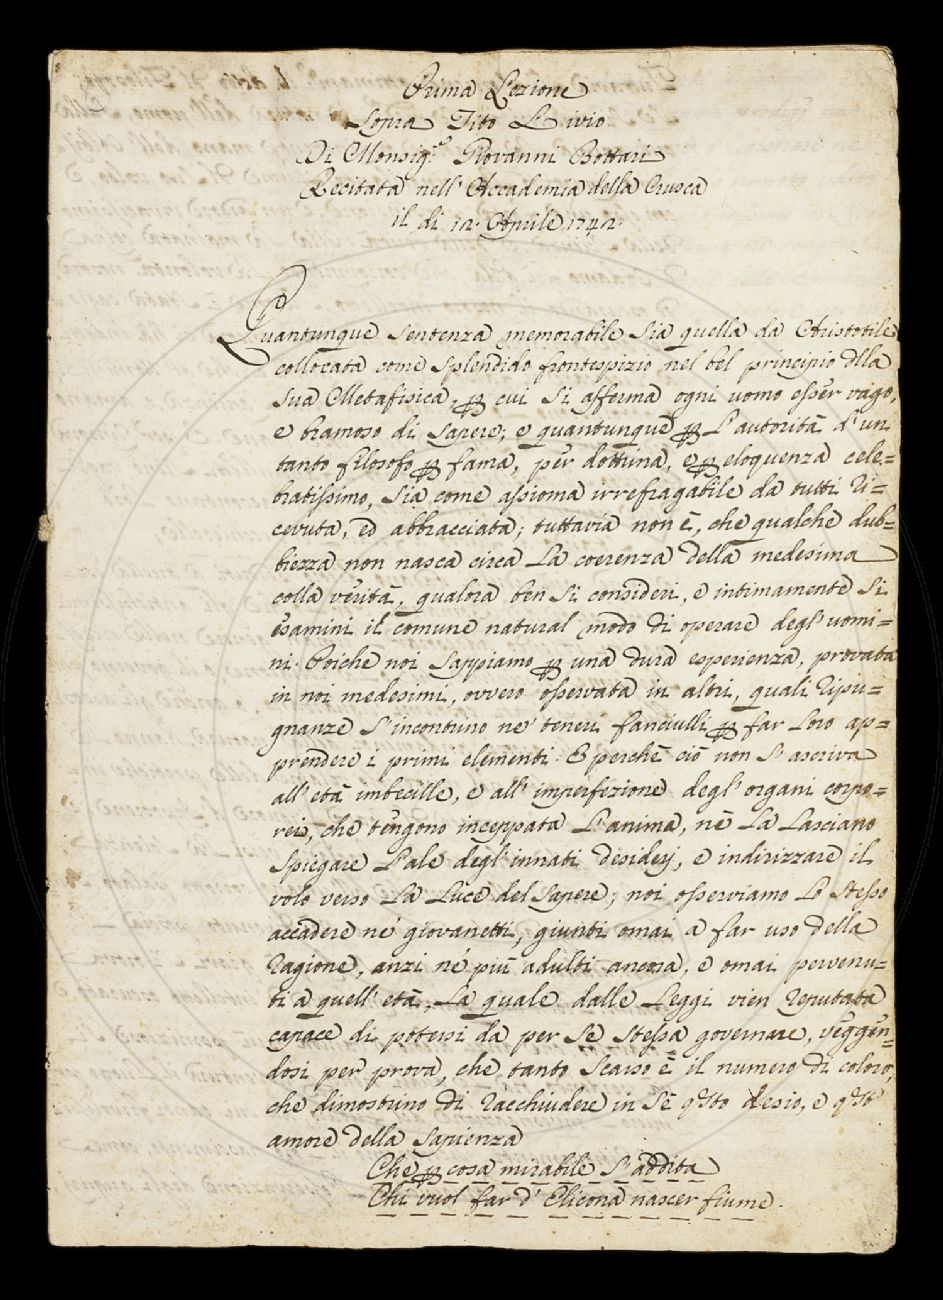 Prima Lezione
Sopra Tito Livio
Di Monsig.r Giovanni Bottari
Recitata nell'Accademia della Crusca
il di 12. Aprile 1742.
Quantunque sentenza memorabile sia quella da Aristotile
collocata come splendido frontespizio nel bel principio dlla
sua Metafisica, ꝑ cui si afferma ogni uomo esser vago,
e bramoso di sapere; e quantunque ꝑ l'autorità d'un
tanto filosofo ꝑ fama, per dottrina, e ꝑ eloquenza cele=
bratissimo, sia come assioma irrefragabile da tutti ri=
cevuta, ed abbracciata; tuttavia non è, che qualche dub=
biezza non nasca circa la coerenza della medesima
colla verità, qualora ben si consideri, e intimamente si
esamini il comune natural modo di operare degl'uomi=
ni. Poiche noi sappiamo ꝑ una dura esperienza, provata
in noi medesimi, ovvero osservata in altri, quali ripu=
gnanze s'incontrino ne' teneri fanciulli ꝑ far loro ap=
prendere i primi elementi. E perchè ciò non s'ascriva
all'età imbecille, e all'imperfezione degl'organi corpo=
rei, che tengono inceppata l'anima, nè la lasciano
spiegare l'ale degl'innati desiderj, e indirizzare il
volo verso la luce del sapere; noi osserviamo lo stesso
accadere ne' giovanetti, giunti omai a far uso della
ragione, anzi ne' più adulti ancora, e omai pervenu=
ti a quell'età, la quale dalle leggi vien reputata
capace di potersi da per sè stessa governare, veggen=
dosi per prova, che tanto scarso è il numero di coloro,
che dimostrino di racchiudere in sè q.sto desio, e q.sto
amore della sapienza
Che ꝑ cosa mirabile s'addita
Chi vuol far d'Elicona nascer fiume.